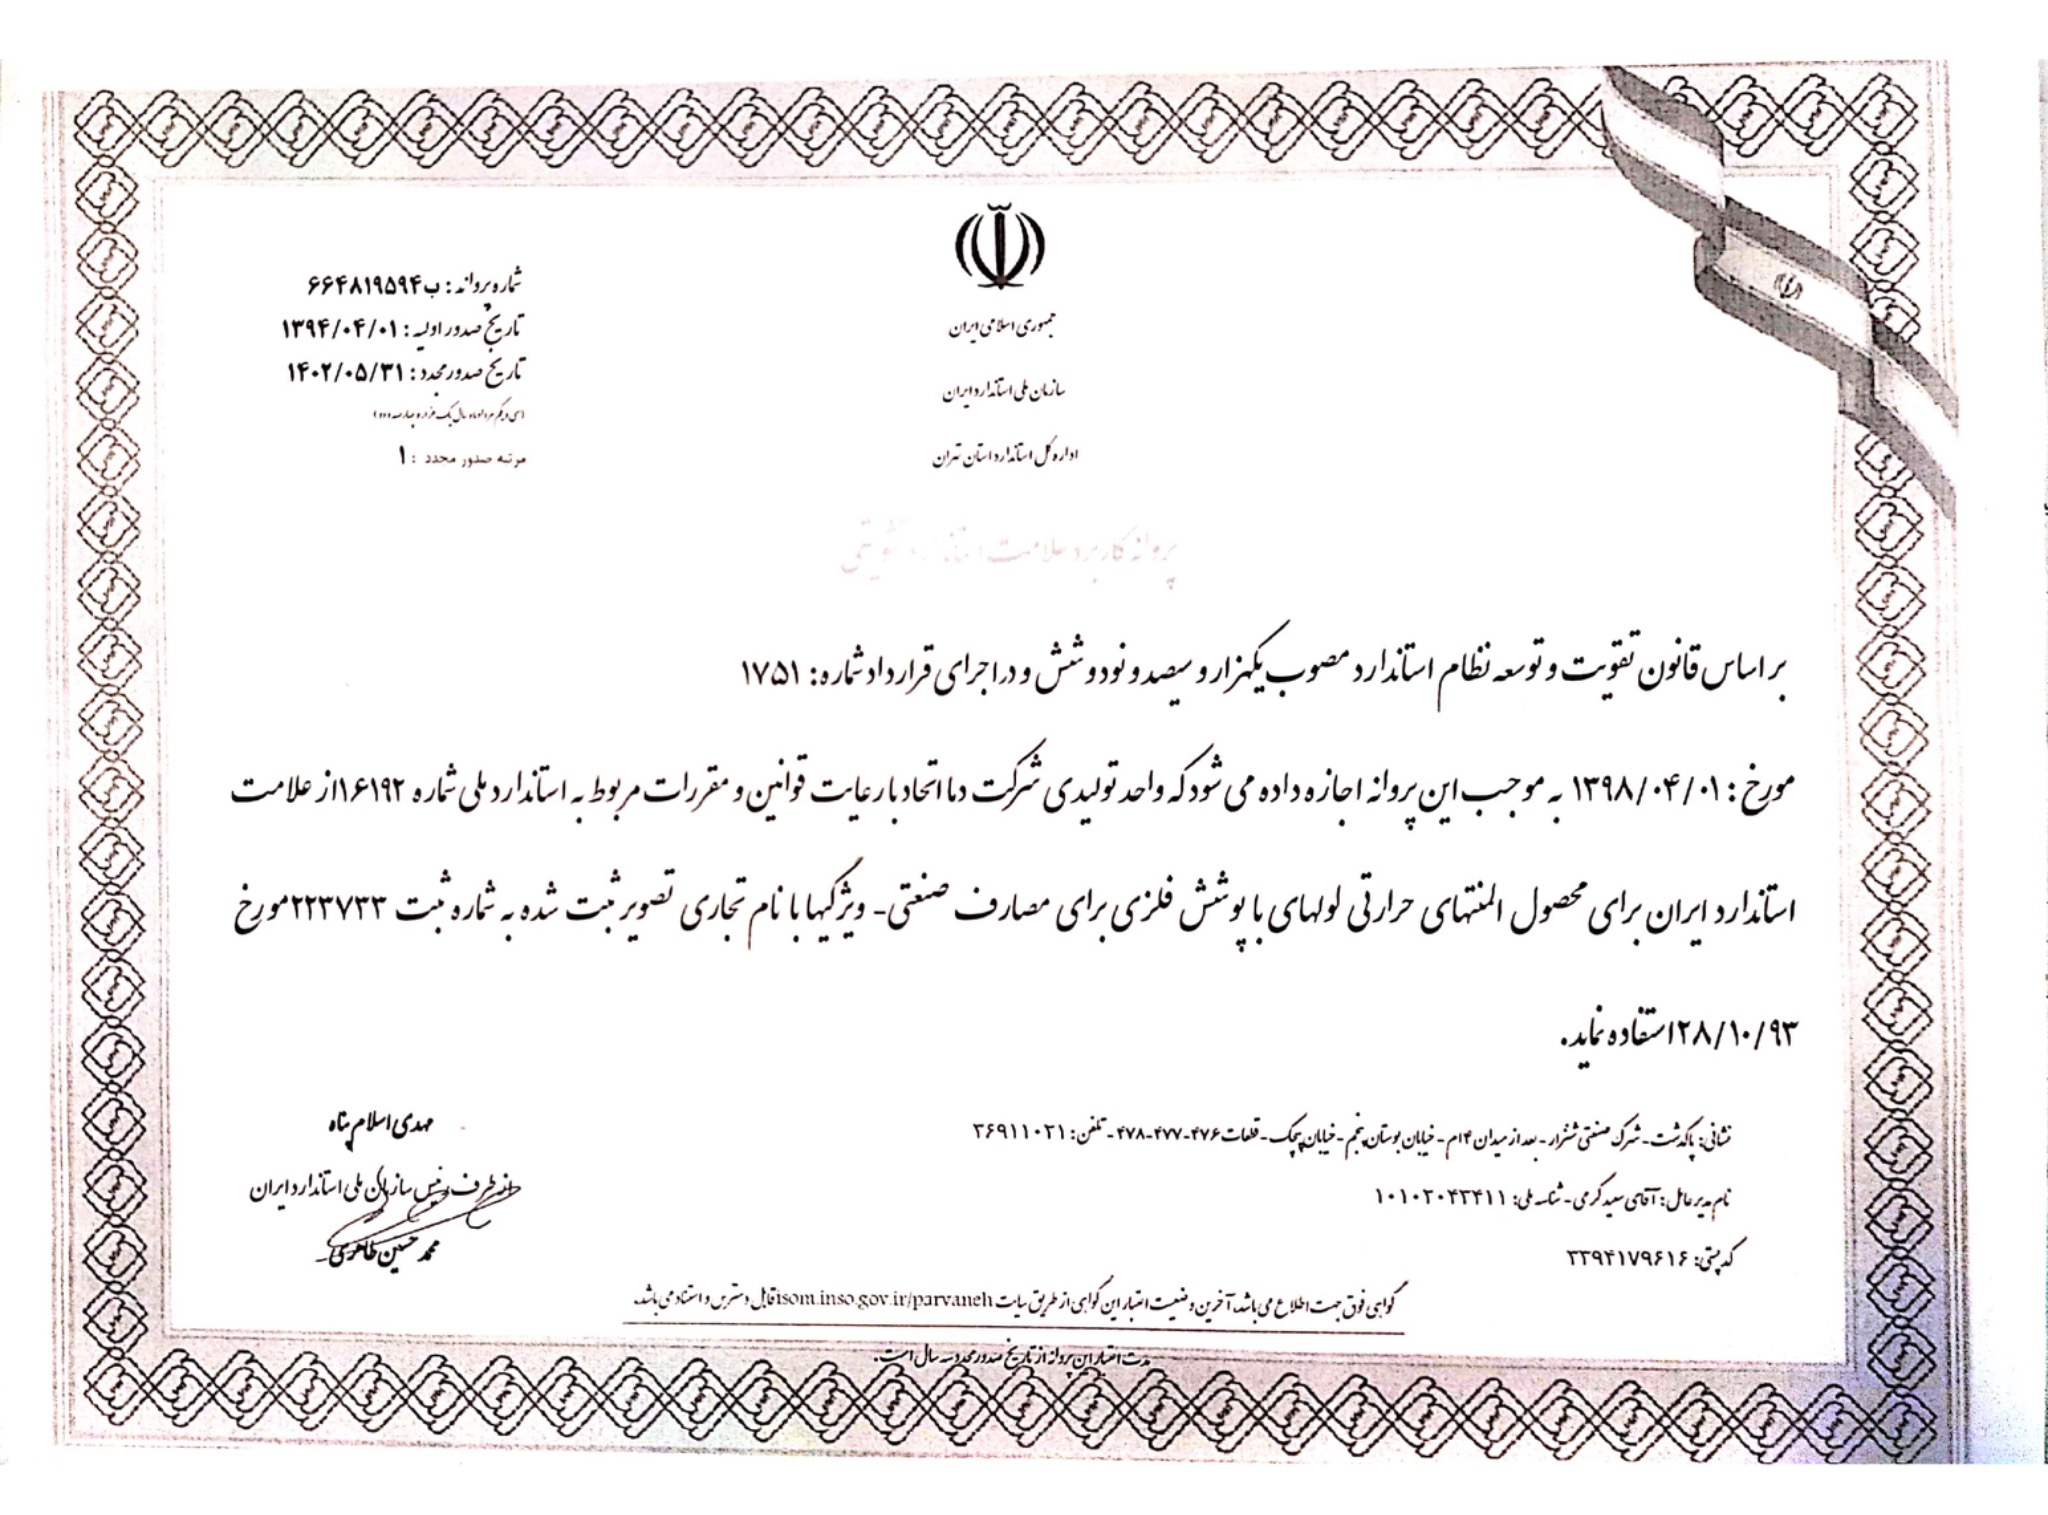 جمهوری اسلامی ایران
سازمان ملی استاندارد ایران
اداره کل استاندارد استان تهران
شماره پروانه : ب۶۶۴۸۱۹۵۹۴
تاریخ صدور اولیه : ۱۳۹۴/۰۴/۰۱
تاریخ صدور مجدد : ۱۴۰۲/۰۵/۳۱
(سی و یکم مرداد ماه سال یک هزار و چهارصد و دو)
مرتبه صدور مجدد : ۱
پروانه کاربرد علامت استاندارد تشویقی
بر اساس قانون تقویت و توسعه نظام استاندارد مصوب یکهزار و سیصد و نود و شش و در اجرای قرارداد شماره : ۱۷۵۱
مورخ : ۱۳۹۸/۰۴/۰۱ به موجب این پروانه اجازه داده می شود که واحد تولیدی شرکت دما اتحاد با رعایت قوانین و مقررات مربوط به استاندارد ملی شماره ۱۶۱۹۲از علامت
استاندارد ایران برای محصول المنتهای حرارتی لوله‍ای با پوشش فلزی برای مصارف صنعتی- ویژگیها با نام تجاری تصویر ثبت شده به شماره ثبت ۲۲۳۷۳۳مورخ
۲۸/۱۰/۹۳استفاده نماید.
نشانی: پاکدشت- شهرک صنعتی - بعد از میدان ۱۴م - خیابان بوستان پنجم - خیابان پیچک - قطعات ۴۷۶-۴۷۷-۴۷۸ - تلفن: ۳۶۹۱۱۰۳۱
نام مدیر عامل: آقای سعید کرمی - شناسه ملی: ۱۰۱۰۲۰۴۳۴۱۱
کد پستی: ۳۳۹۴۱۷۹۶۱۶
مهدی اسلام پناه
از طرف رئیس سازمان ملی استاندارد ایران
محمد حسین طاهری
گواهی فوق جهت اطلاع می باشد، آخرین وضعیت اعتبار این گواهی از طریق سایت isom.inso.gov.ir/parvaneh قابل دسترس و استناد می باشد.
مدت اعتبار این پروانه از تاریخ صدور مجدد سه سال است.